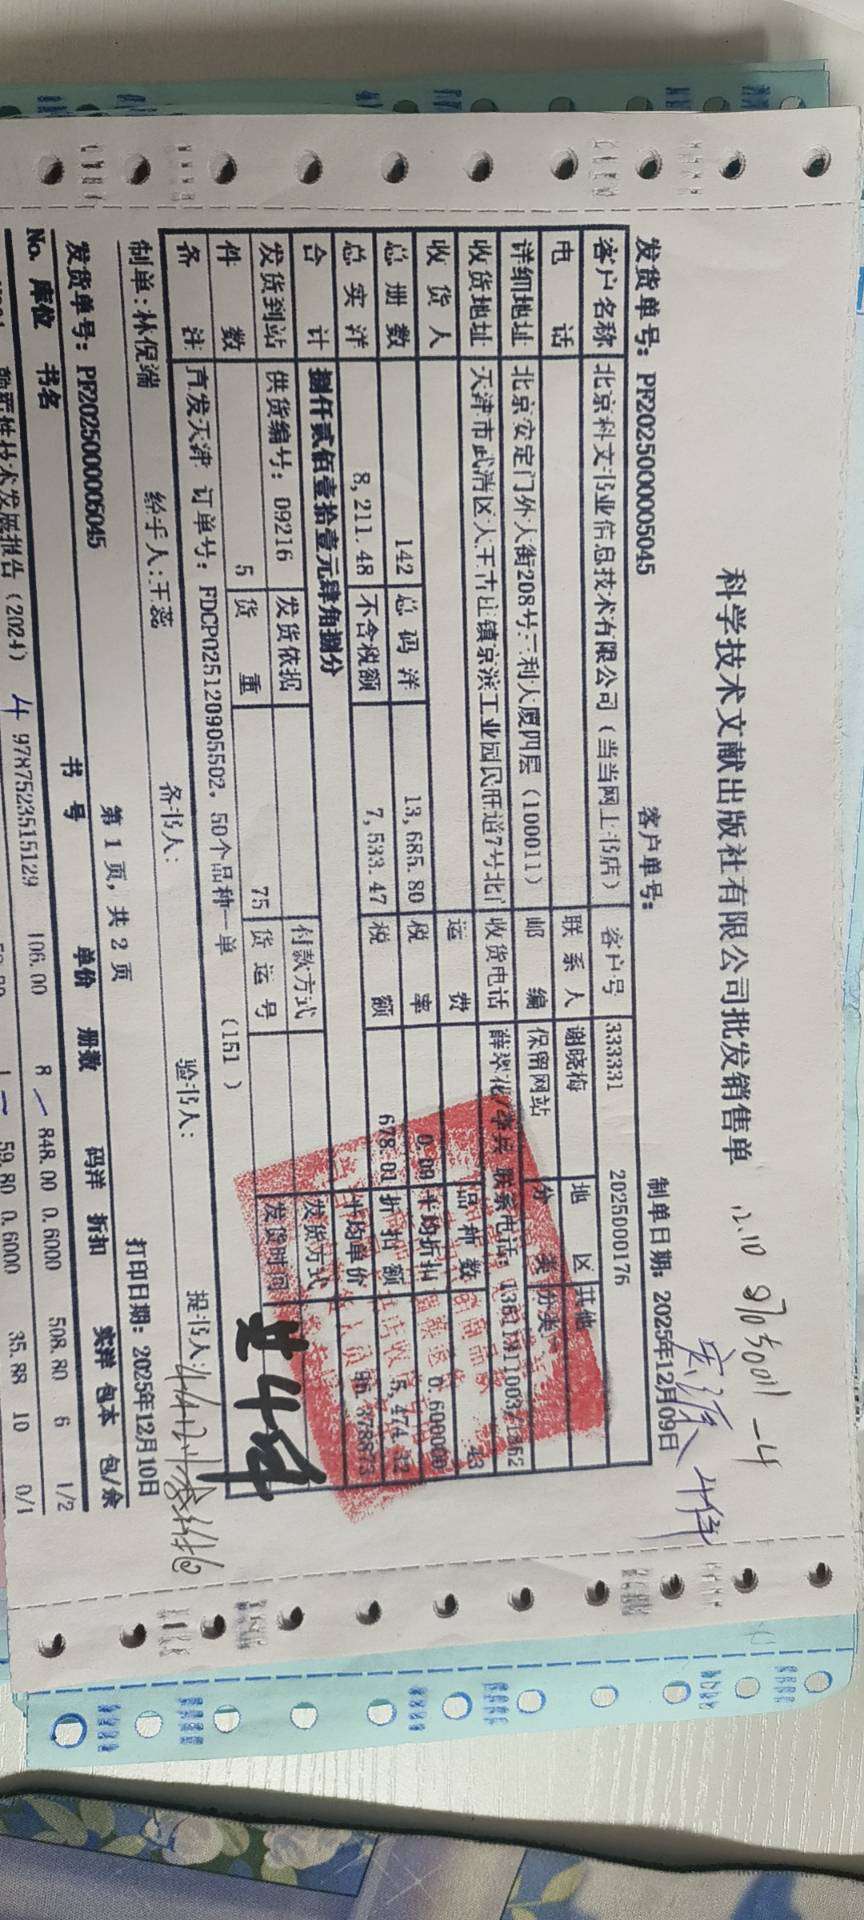 科学技术文献出版社有限公司批发销售单
12.10
发货单号：PF2025000005045 客户单号： 制单日期：2025年12月09日
客户名称 北京科文书业信息技术有限公司（当当网上书店） 客户号 333331 2025000176
电话 联系人 谢晓梅 地区 其他
详细地址 北京安定门外大街208号三利大厦四层（100011） 邮编 保留网站 分类
收货地址 天津市武清区大王古庄镇京滨工业园民旺道7号北门 收货电话 薛翠花/李兵 联系电话：
收货人 运费 品种数 43
总册数 142 总码洋 13,685.80 税率 0.09 平均折扣 0.600000
总实洋 8,211.48 不含税额 7,533.47 税额 678.01 折扣额 5,474.32
合计 捌仟贰佰壹拾壹元肆角捌分 平均单价 96.378873
发货到站 供货编号：09216 发货依据 付款方式 发货方式
件数 5 货重 75 货运号 发货时间
共4件
备注 直发天津 订单号：FDCP025120905502，50个品种一单 （151 ）
制单：林倪端 经手人：王蕊 备书人： 验书人： 提书人：
第 1 页，共 2 页 打印日期：2025年12月10日
发货单号：PF2025000005045
No. 库位 书名 书号 单价 册数 码洋 折扣 实洋 包本 包/余
技术发展报告（2024） 4 9787523515129 106.00 8 848.00 0.6000 508.80 6 1/2
1 59.80 0.6000 35.88 10 0/1